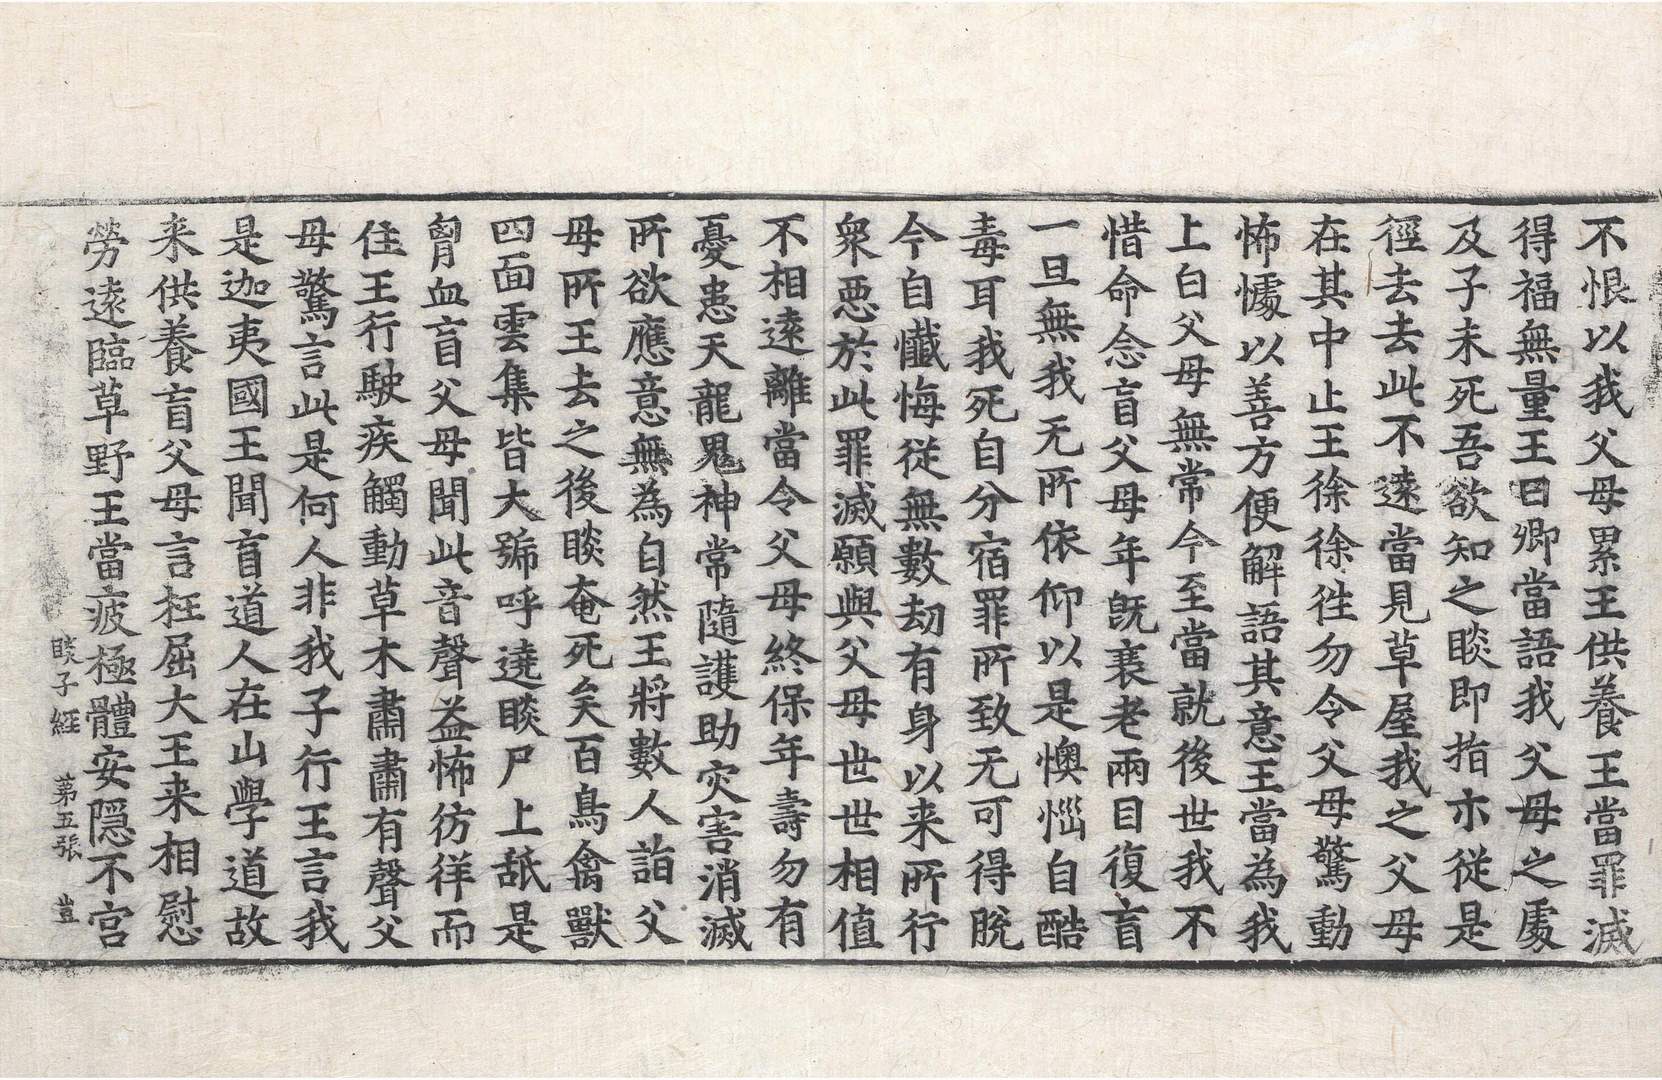 不恨以我父母累王供養王當罪滅
得福無量王曰卿當語我父母之處
及子未死吾欲知之睒即指示從是
徑去去此不遠當見草屋我之父母
在其中止王徐徐徃勿令父母驚動
怖懅以善方便解語其意王當為我
上白父母無常今至當就後世我不
惜命念盲父母年旣衰老兩目復盲
一旦無我无所依仰以是懊惱自酷
毒耳我死自分宿罪所致无可得脫
今自懺悔從無數劫有身以来所行
衆惡於此罪滅願與父母世世相值
不相遠離當令父母終保年壽勿有
憂患天龍鬼神常隨護助灾害消滅
所欲應意無為自然王將數人詣父
母所王去之後睒奄死矣百鳥禽獸
四面雲集皆大號呼遶睒尸上舐是
胷血盲父母聞此音聲益怖彷徉而
住王行駛疾觸動草木肅肅有聲父
母驚言此是何人非我子行王言我
是迦夷國王聞盲道人在山學道故
来供養盲父母言枉屈大王来相慰
勞遠臨草野王當疲極體安隱不宮
睒子經 苐五張 豈